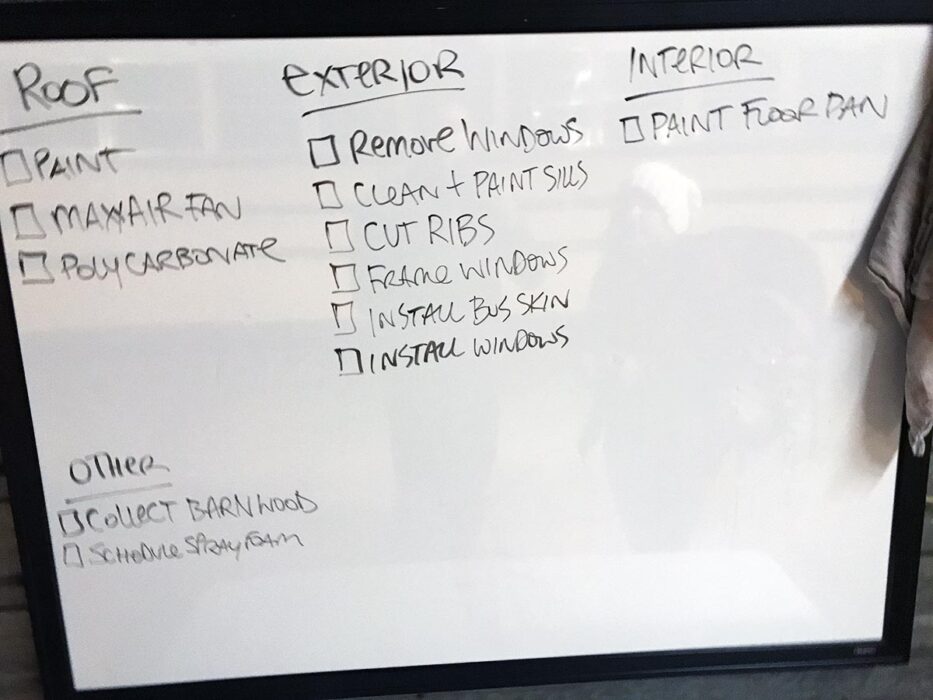 ROOF
☐ PAINT
☐ MAXXAIR FAN
☐ POLYCARBONATE
EXTERIOR
☐ Remove WINDOWS
☐ CLEAN + PAINT SILLS
☐ CUT RIBS
☐ FRAME WINDOWS
☐ INSTALL BUS SKIN
☐ INSTALL WINDOWS
INTERIOR
☐ PAINT FLOOR PAN
OTHER
☐ COLLECT BARN WOOD
☐ SCHEDULE SPRAY FOAM